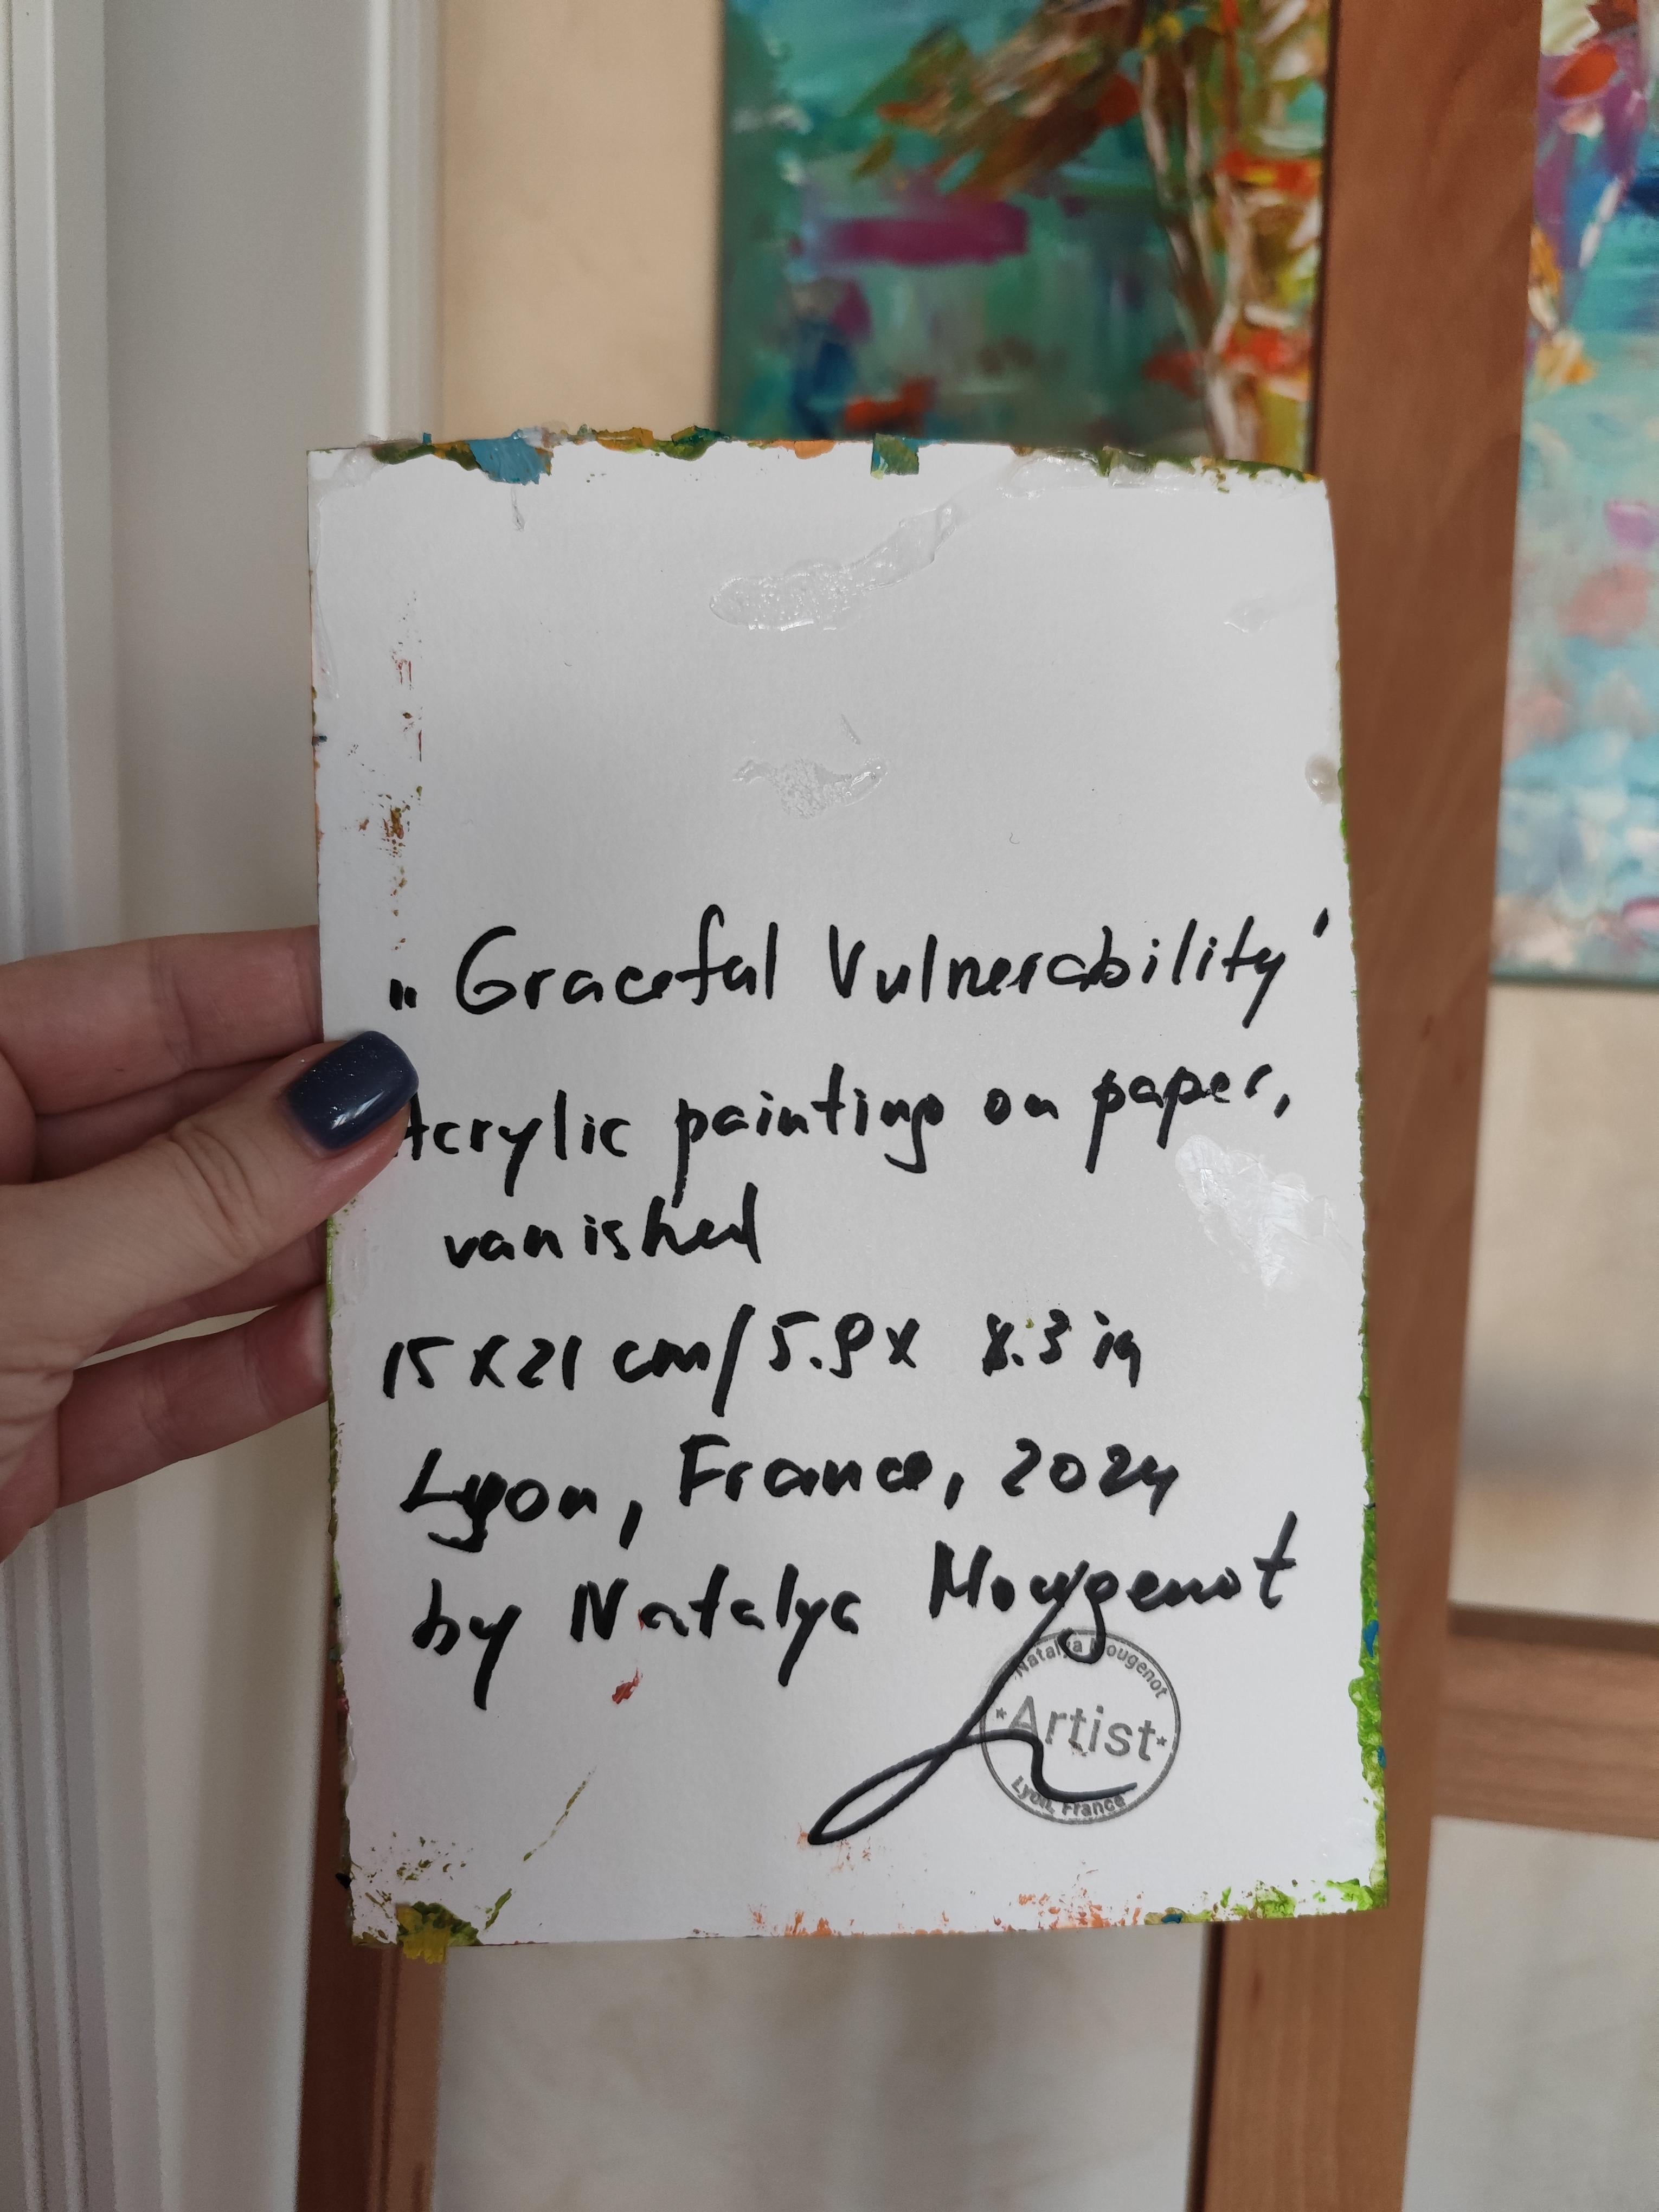 „Graceful Vulnerability"
Acrylic painting on paper,
vanished
15 x 21 cm/5.9 x 8.3 in
Lyon, France, 2024
by Natalya Mougenot
Natalya Mougenot
*Artist*
Lyon, France